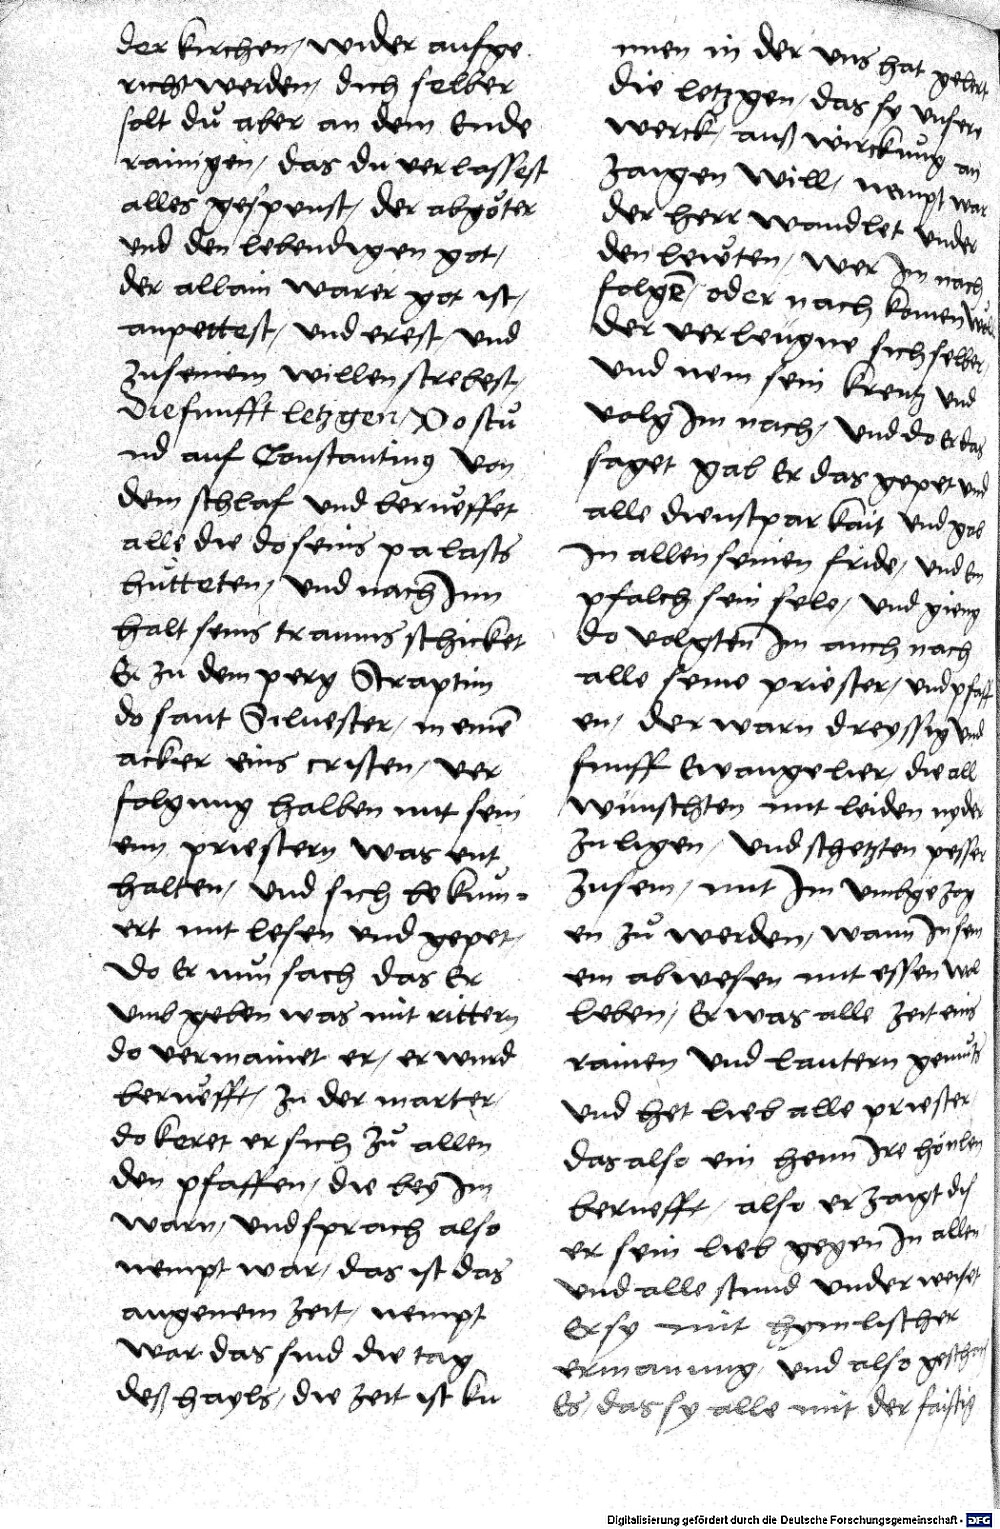 der kirchen / wider aufge
richt werden / dich selber
solt dů aber an dem Ende
rainigen / das du verlassest
alles gespenst / der abgöter
vnd den lebendigen got /
der allain warer got ist /
anpettest / vnd erest / vnd
zu seinem willen strebest /
Die funfft letzgen / Do stů
nd auf Constantinus von
dem schlaf vnd berueffet
alle die do seins palasts
hůtteten / vnd nach Inn
halt seins traums schicket
Er zu dem perg Straptim
do sant Siluester / in einē
acker eins cristen / ver
folgung halben mit sein
enn priestern was ent
halten / vnd sich bekum-
ert mit lesen vnd gepet /
Do Er nun sach das Er
vmb geben was mit rittern
do vermainet er / er wurd
berůefft / zu der marter /
do keret er sich zů allen
den pfaffen / die bey Im
warn / vnd sprach also
nempt war / das ist das
angenem zeit / nempt
war das sind die tag
deß hayls / die zeit ist ku
men in der vns hat gelert
die letzgen / das sy vnsere
werck / auß wirckung an
zaigen will / nempt war
der herr wandlet vnder
den lewten / wer Im nach
folgē / oder nach komen
der verleugne sich selber /
vnd nem sein kreutz vnd
volg Im nach / vnd do Er das
saget gab Er das gepet vnd
alle dienstparkait vnd gab
In allen seinen fride / vnd En
pfalch sein sele / vnd gieng
do volgten Im auch nach
alle seine priester / vnd pfaff
en / der warn dreyssig vnd
funff Ewangelier / die all
wünschten mit leiden nyder
zu ligen / vnd schetzten pesser
zu sein / mit Im vmbgezog
en zů werden / wann In sein
em abwesen mit essen wol
leben / Er was alle zeit eins
rainen vnd lautern gemůts
vnd het lieb alle priester
das also ein henn Ire hönlen
beruefft / also erzaigt
er sein lieb gegen In allen
vnd alle stund vnderweiset
Er sy mit hymlischer
ermanung / vnd also geschach
Es / das sy alle mit der
Digitalisierung gefördert durch die Deutsche Forschungsgemeinschaft - DFG